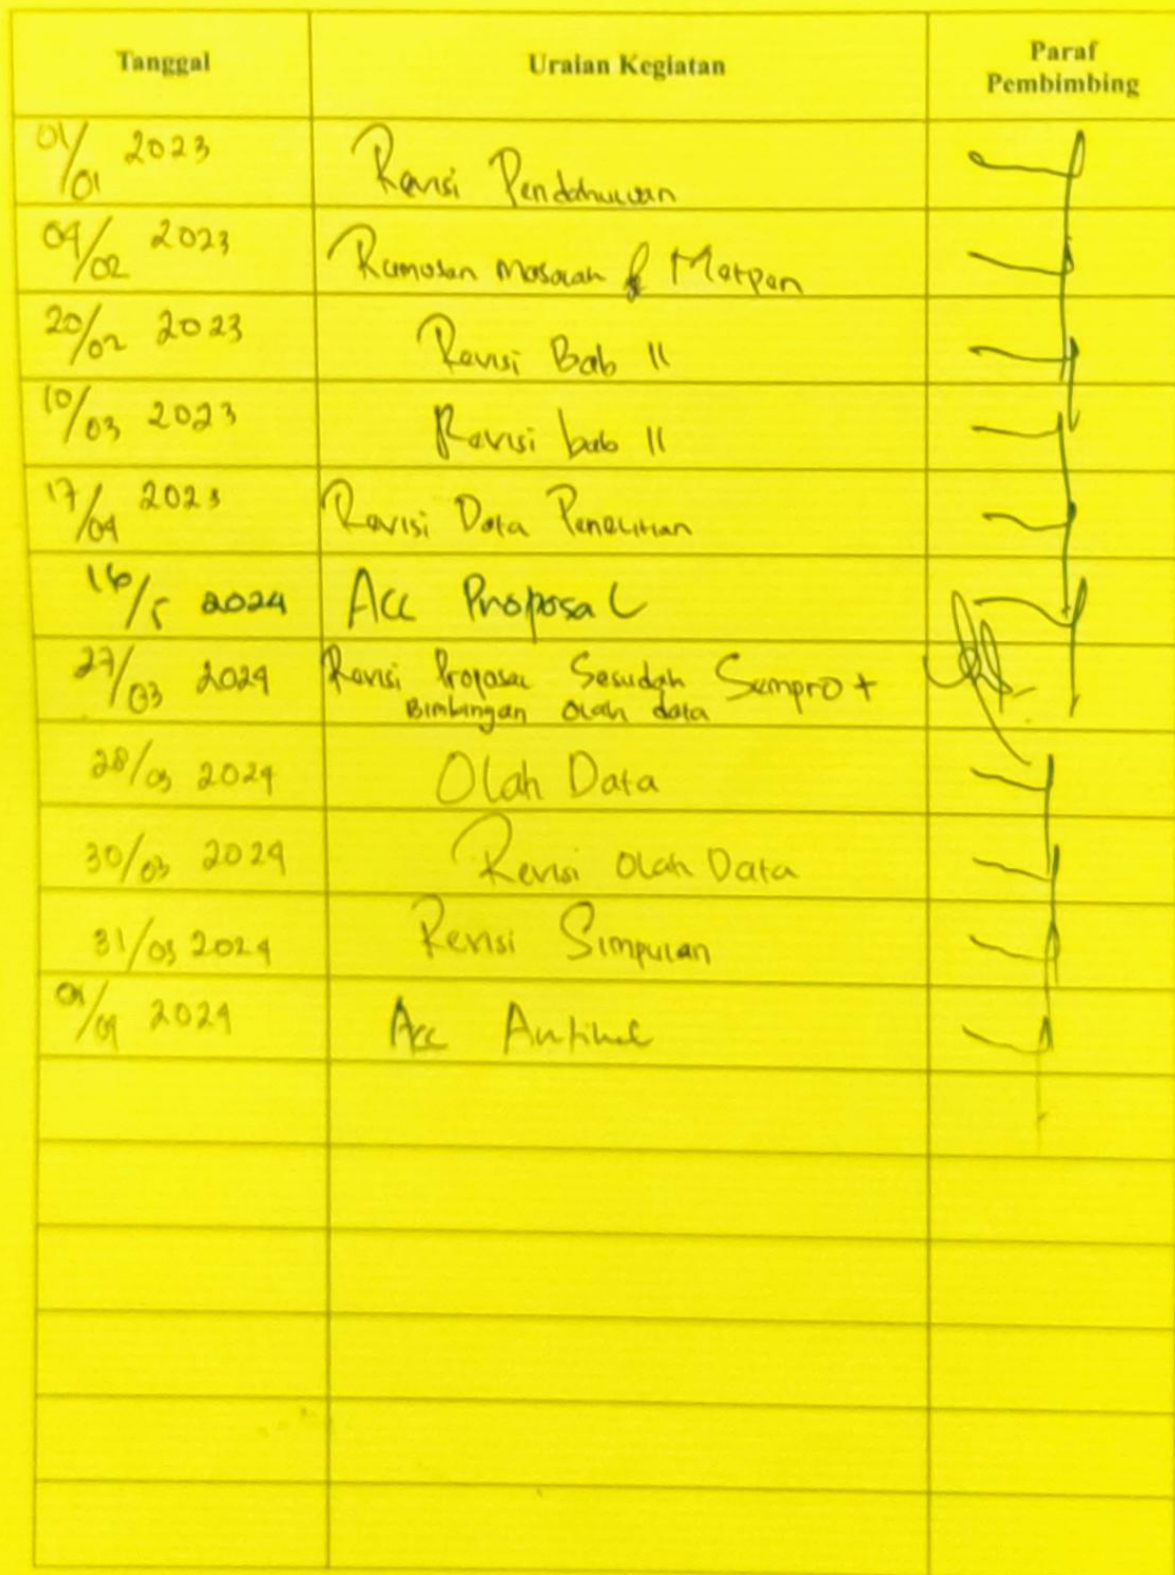 Tanggal Uraian Kegiatan Paraf
Pembimbing
01/01 2023 Revisi Pendahuluan
04/02 2023 Rumusan masalah & Manpan
20/02 2023 Revisi Bab II
10/03 2023 Revisi bab II
17/04 2023 Revisi Data Penelitian
16/5 2024 Acc Proposal
27/03 2024 Revisi Proposal Sesudah Sempro +
Bimbingan olah data
28/03 2024 Olah Data
30/03 2024 Revisi Olah Data
31/03 2024 Revisi Simpulan
01/04 2024 Acc Artikel